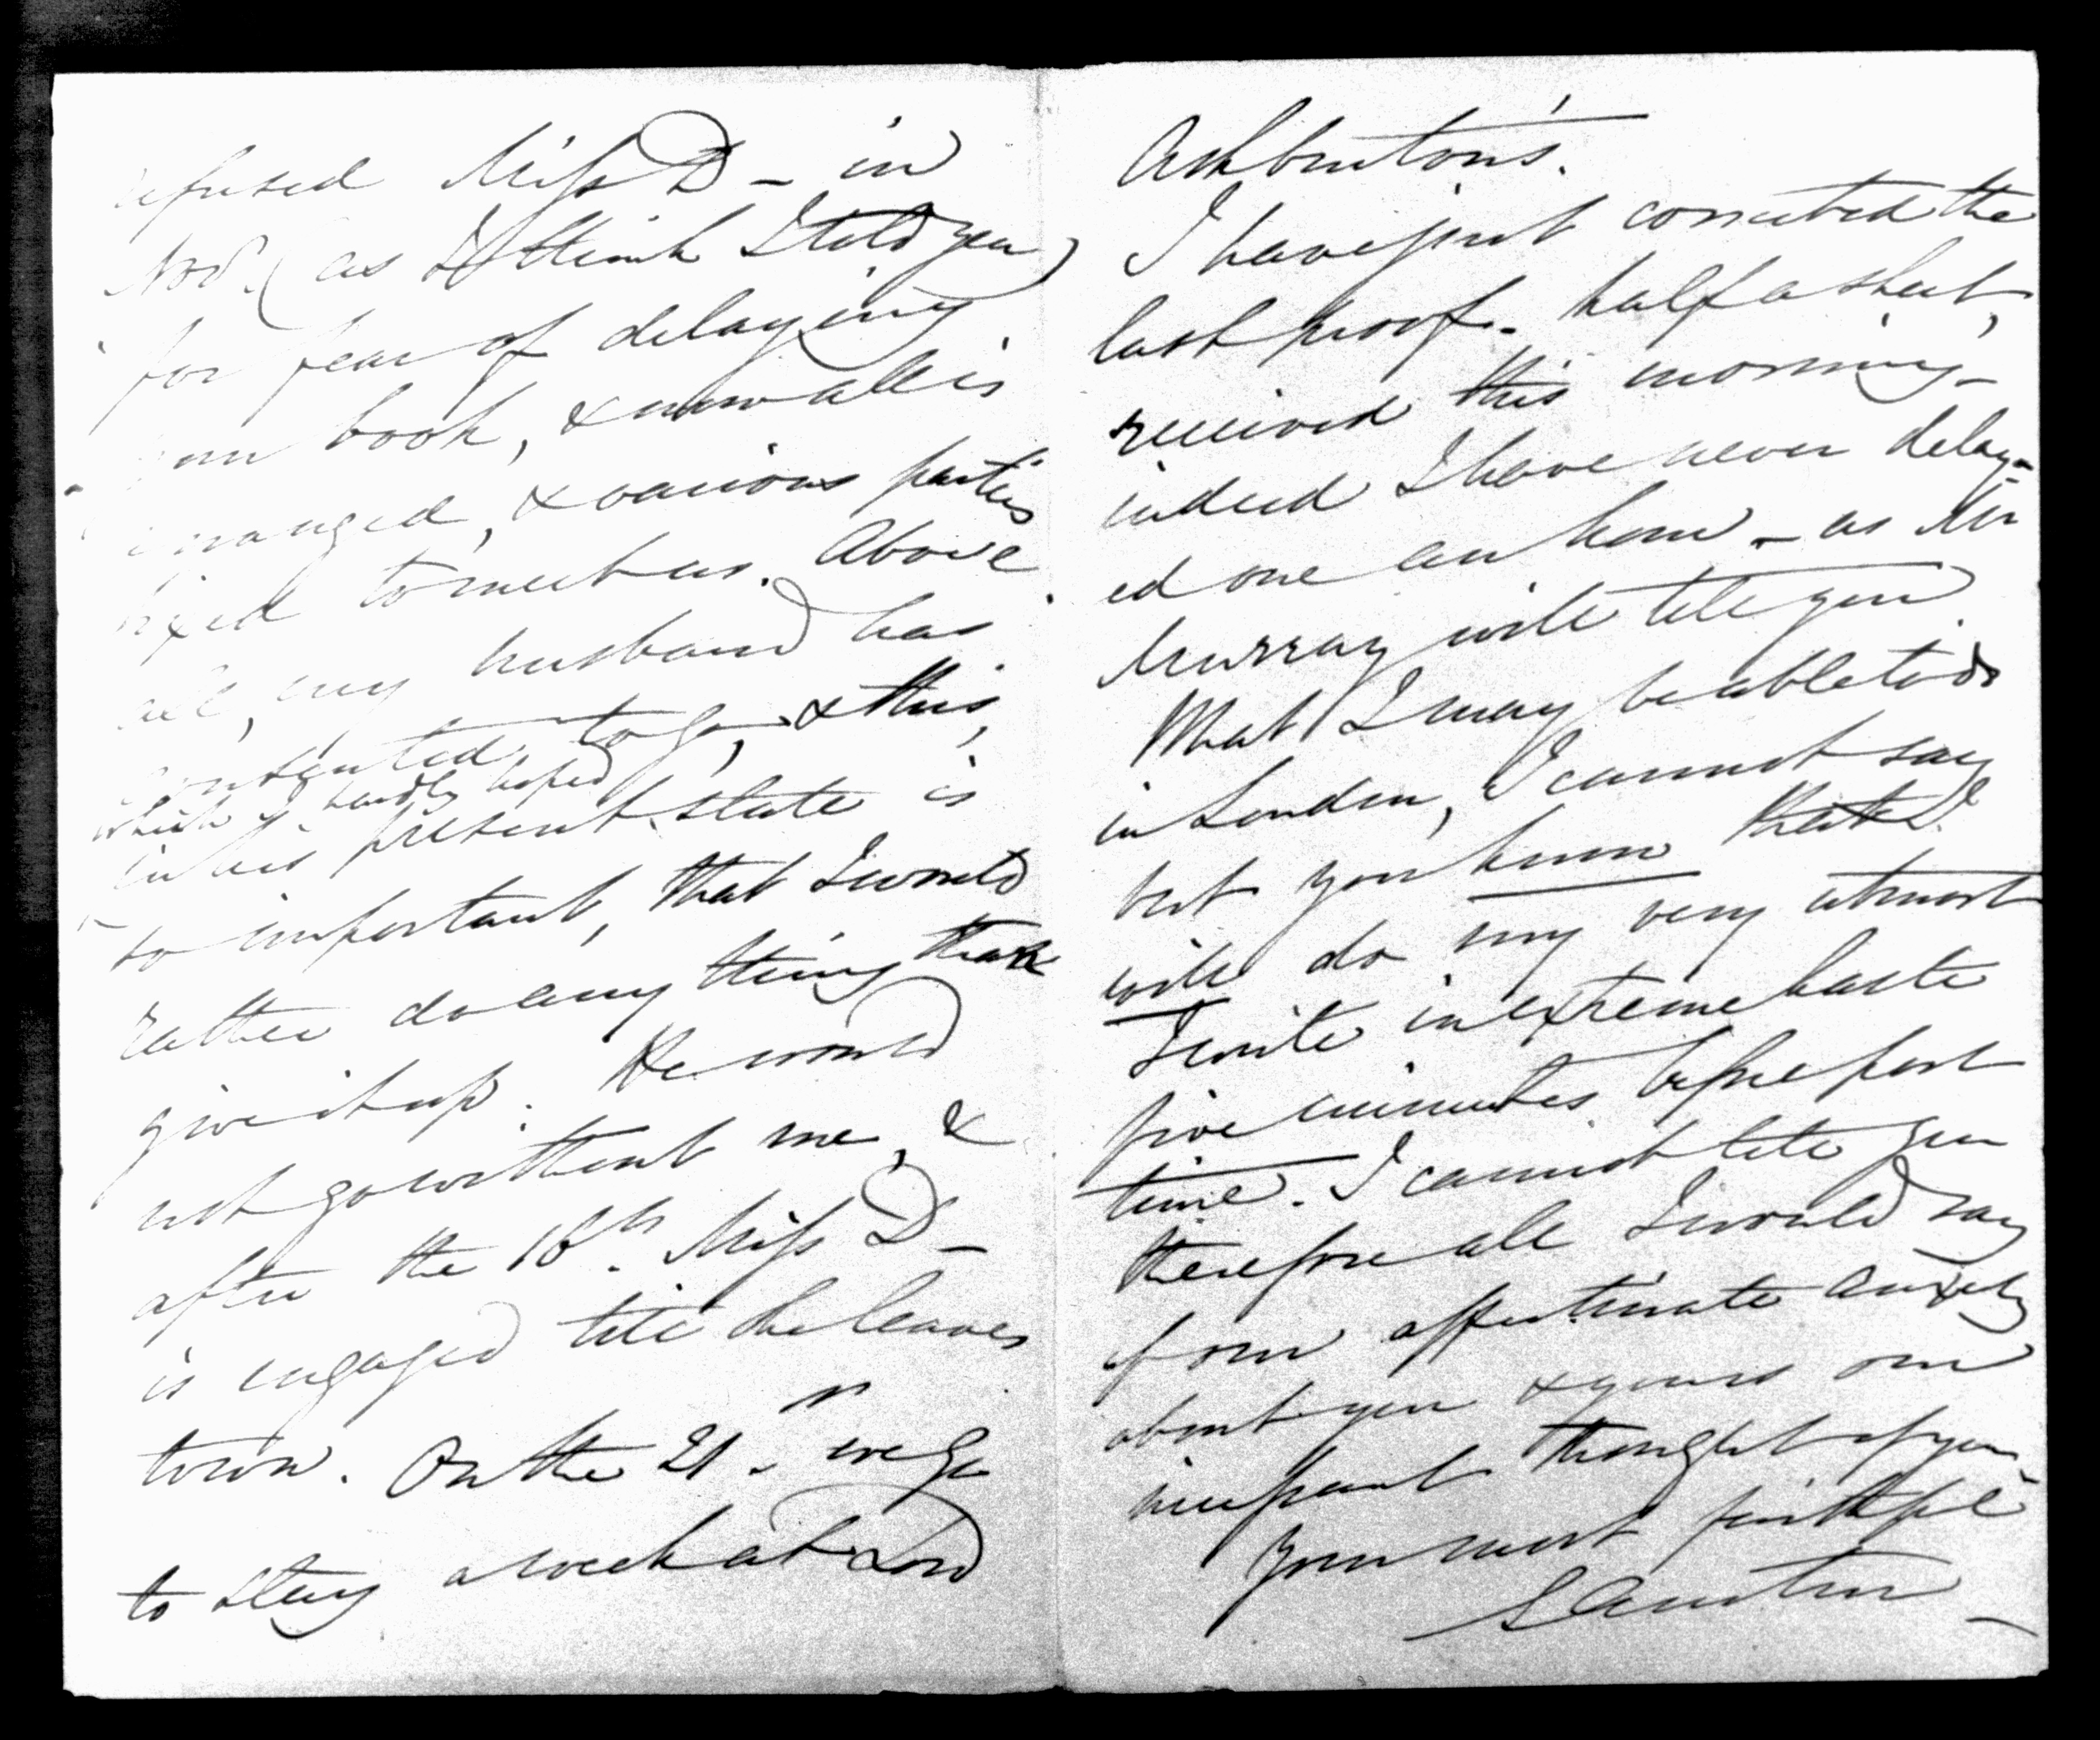 refused Miss D – in
Nov.r (as I think I told you)
for fear of delaying
your book, & now all is
arranged, & various parties
fixed to meet us. Above
all, my husband has
consented to go, & this,
which I hardly hoped
in his present state is
so important, that I would
rather do any thing than
give it up. He would
not go without me, &
after the 16th. Miss D –
is engaged till she leaves
town. On the 21st we go
to stay a week at Lord
Ashburton's.
I have just corrected the
last proof – half a sheet,
received this morning –
indeed I have never delay-
ed one an hour – as Mr
Murray will tell you
What I may be able to do
in London, I cannot say
but you know that I
will do my very utmost
I write in extreme haste
five minutes before post
time. I cannot tell you
therefore all I would say
of our affectionate anxiety
about you & yours our
incessant thought of you.
Your most faithful
S Austin –